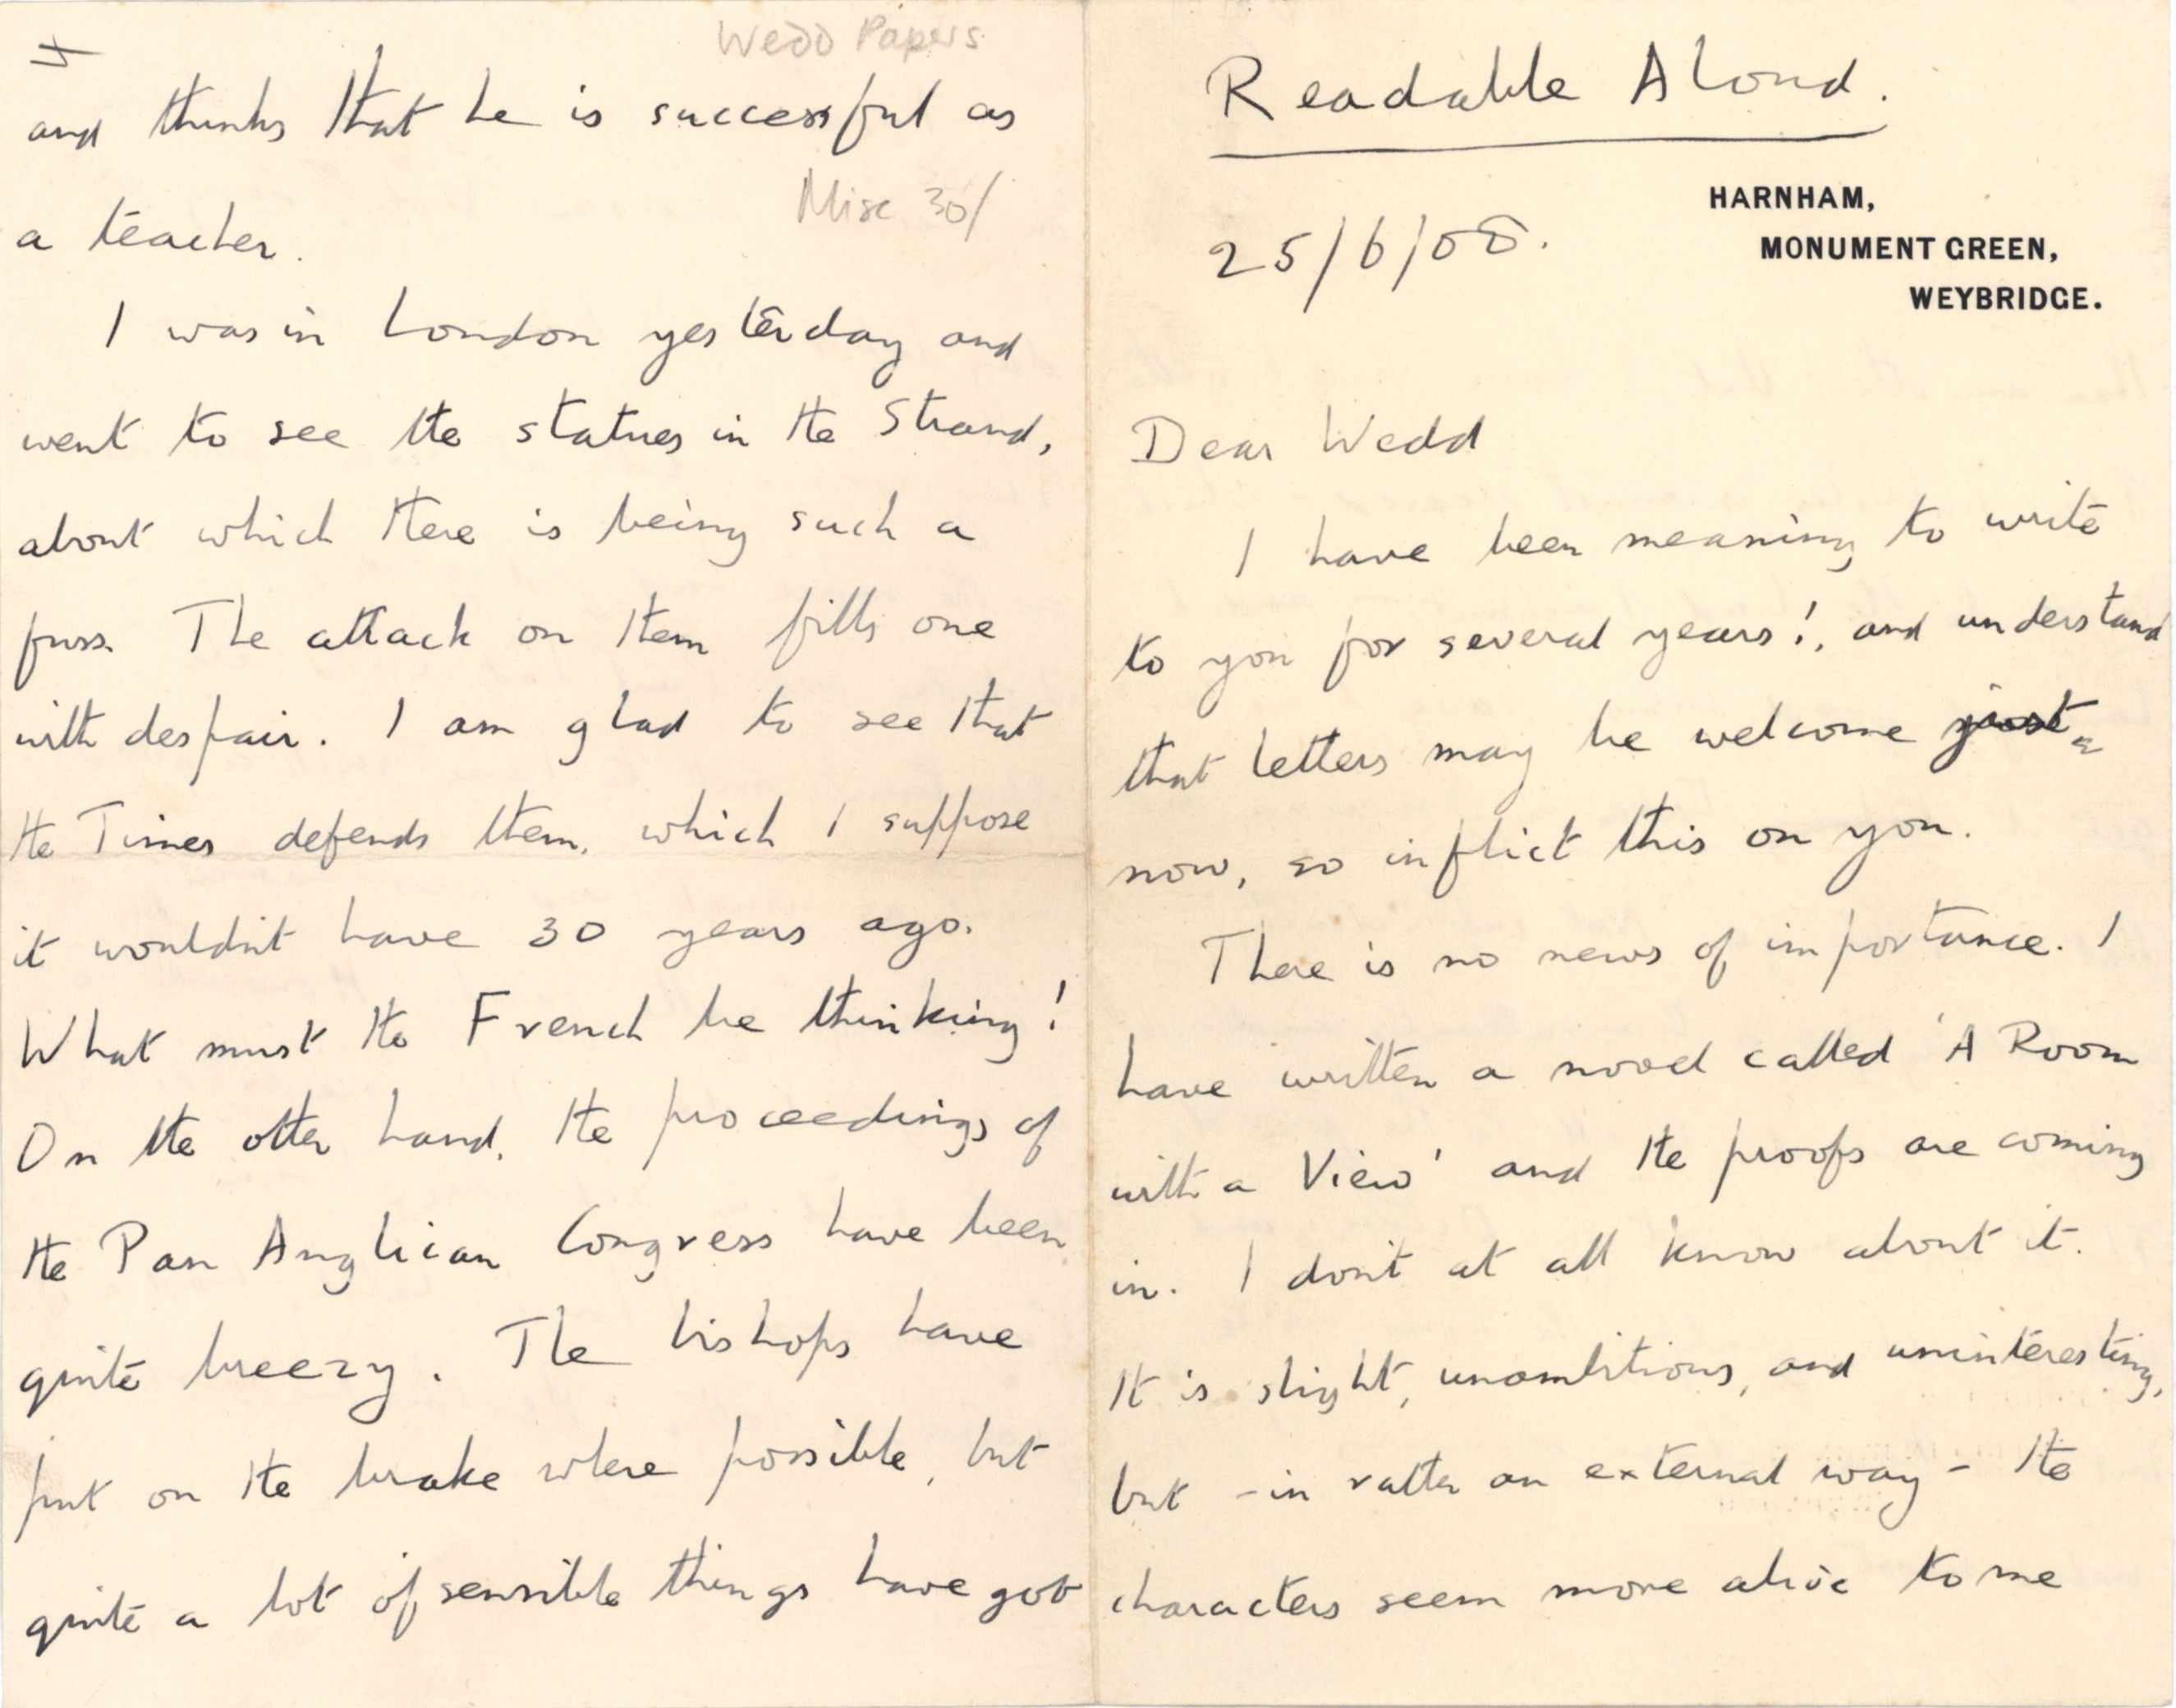 Readable Aloud.
HARNHAM,
MONUMENT GREEN,
WEYBRIDGE.
25/6/08.
Dear Wedd
I have been meaning to write
to you for several years!, and understand
that letters may be welcome just
now, so inflict this on you.
There is no news of importance. I
have written a novel called 'A Room
with a View' and the proofs are coming
in. I don't at all know about it.
It is slight, unambitious, and uninteresting,
but - in rather an external way - the
characters seem more alive to me
4
Wedd Papers
and thinks that he is successful as
Misc 30/
a teacher.
I was in London yesterday and
went to see the statues in the Strand,
about which there is being such a
fuss. The attack on them fills one
with despair. I am glad to see that
the Times defends them, which I suppose
it wouldn't have 30 years ago.
What must the French be thinking!
On the other hand, the proceedings of
the Pan Anglican Congress have been
quite breezy. The bishops have
put on the brake where possible, but
quite a lot of sensible things have got